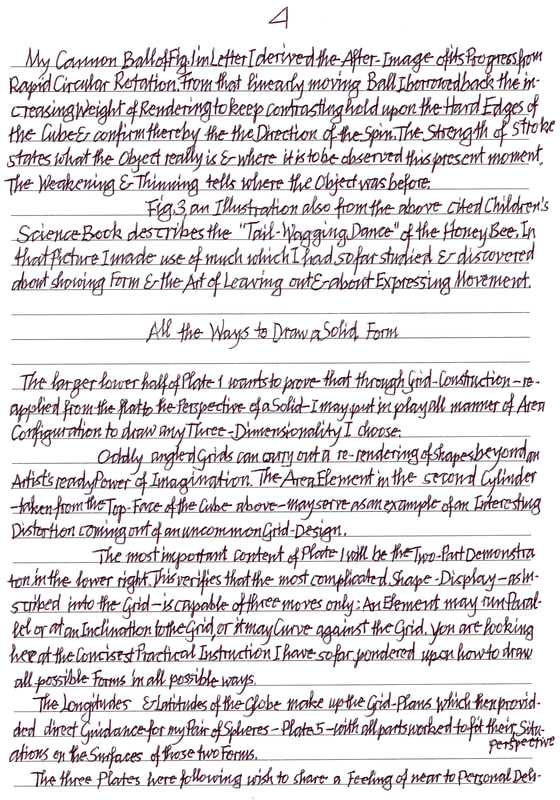 4
My Cannon Ball of Fig.1 in Letter I derived the After-Image of its Progress from
Rapid Circular Rotation. From that linearly moving Ball I borrowed back the in-
creasing Weight of Rendering to keep contrasting hold upon the Hard Edges of
the Cube & confirm thereby the the Direction of the Spin. The Strength of Stroke
states what the Object really is & where it is to be observed this present moment.
The Weakening & Thinning tells where the Object was before.
Fig.3, an Illustration also from the above cited Children's
Science Book describes the "Tail-Wagging Dance" of the Honey Bee. In
that Picture I made use of much which I had so far studied & discovered
about showing Form & the Art of Leaving out & about Expressing Movement.
All the Ways to Draw a Solid Form
The larger lower half of Plate 1 wants to prove that through Grid-Construction-re-
applied from the Flat to the Perspective of a Solid-I may put in play all manner of Area
Configuration to draw any Three-Dimensionality I choose.
Oddly angled Grids can carry out a re-rendering of shapes beyond an
Artist's ready Power of Imagination. The Area Element in the second Cylinder
-taken from the Top-Face of the Cube above-may serve as an example of an Interesting
Distortion coming out of an uncommon Grid-Design.
The most important content of Plate 1 will be the Two-Part Demonstra
ton in the lower right. This verifies that the most complicated Shape-Display-as in-
scribed into the Grid-is capable of three moves only: An Element may run Paral-
lel or at an Inclination to the Grid, or it may Curve against the Grid. You are looking
here at the Concisest Practical Instruction I have so far pondered upon how to draw
all possible Forms in all possible ways.
The Longitudes & Latitudes of the Globe make up the Grid-Plans which then provid-
ded direct Guidance for my Pair of Spheres-Plate 5-with all parts worked to fit their Situ-
ations on the Surfaces of those two Forms. perspective
The three Plates here following wish to share a Feeling of near to Personal Deli-